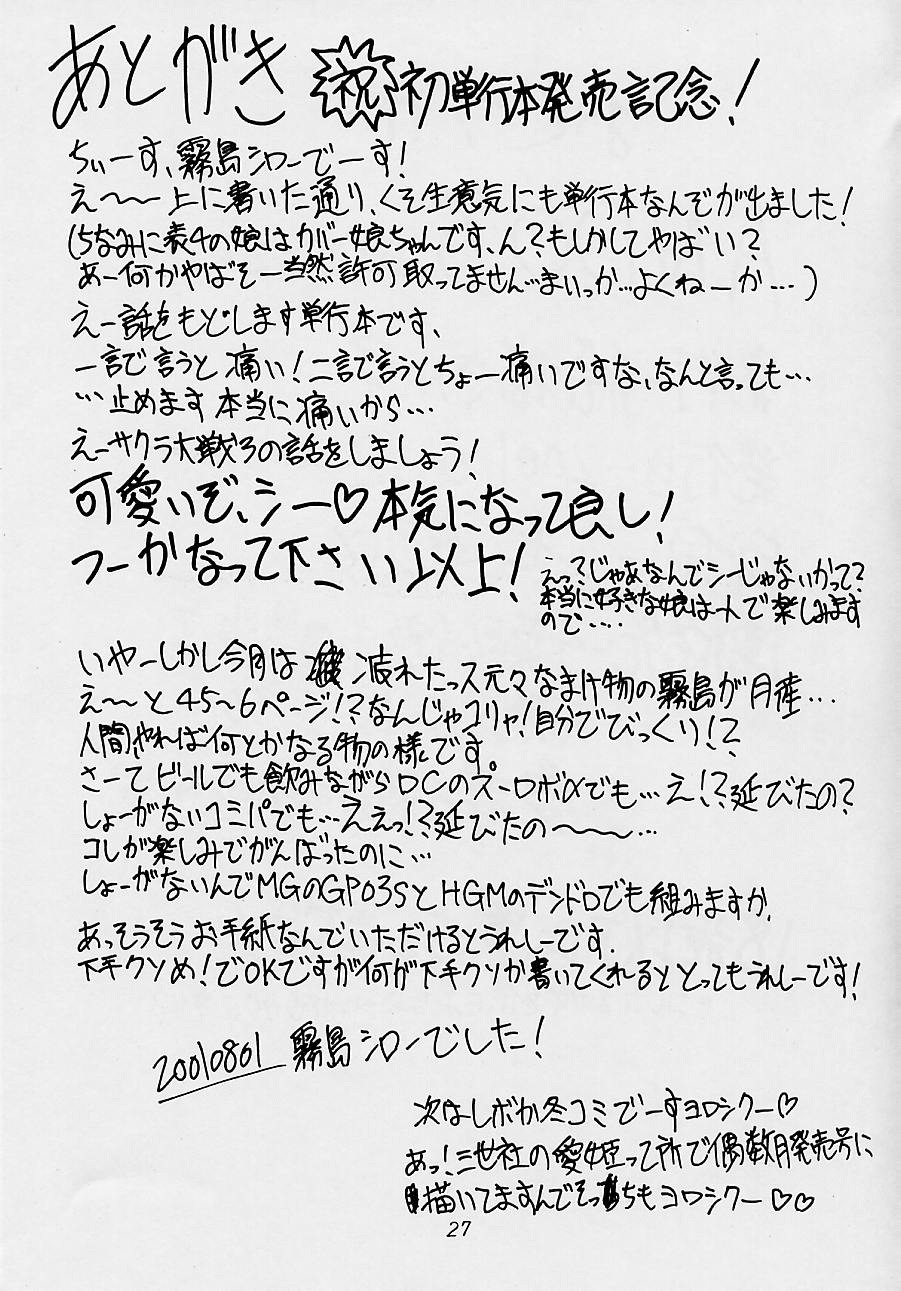 あとがき 祝 初単行本発売記念!
ちぃーす、霧島シローでーす!
え〜〜上に書いた通り、くそ生意気にも単行本なんぞが出ました!
(ちなみに表4の娘はカバー娘ちゃんです、ん?もしかしてやばい?
あー何かやばそー当然許可取ってません…まいっか…よくねーか…)
えー話をもどします単行本です、
一言で言うと痛い!二言で言うとちょー痛いですな、なんと言っても…
…止めます本当に痛いから…
えーサクラ大戦3の話をしましょう!
可愛いぞ、シー♡本気になって良し!
つーかなって下さい以上!
えっ?じゃあなんでシーじゃないかって?
本当に好きな娘は一人で楽しみます
ので・・・・
いやーしかし今月は 疲れたっス元々なまけ物の霧島が月産…
え〜と45〜6ページ!?なんじゃコリャ!自分でびっくり!?
人間やれば何とかなる物の様です
さーてビールでも飲みながらDCのスーロボαでも…え!?延びたの?
しょーがないコミパでも…ええっ!?延びたの〜〜〜…
コレが楽しみでがんばったのに…
しょーがないんでMGのGP03SとHGMのデンドロでも組みますか、
あっそうそうお手紙なんていただけるとうれしーです.
下手クソめ!でOKですが何が下手クソか書いてくれるととってもうれしーです!
20010801 霧島シローでした!
次はレボか冬コミでーすヨロシクー♡
あっ!三世社の愛姫って所で偶数月発売号に
描いてますんでそっちもヨロシクー♡♡
27